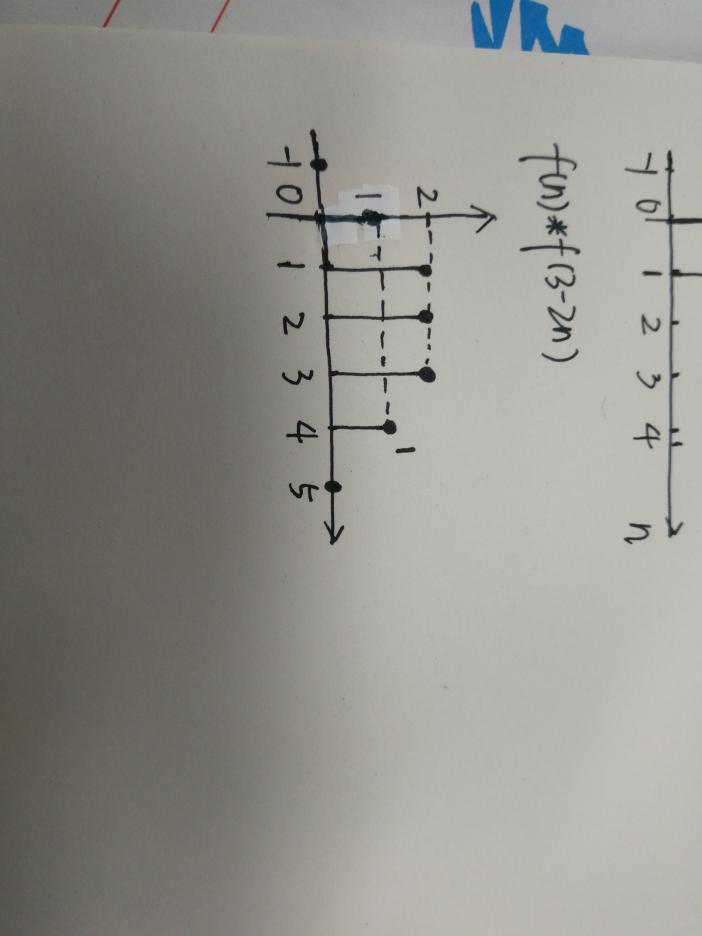 -1 0 1 2 3 4 n
f(n)*f(3-2n)
2
1
1
-1 0 1 2 3 4 5